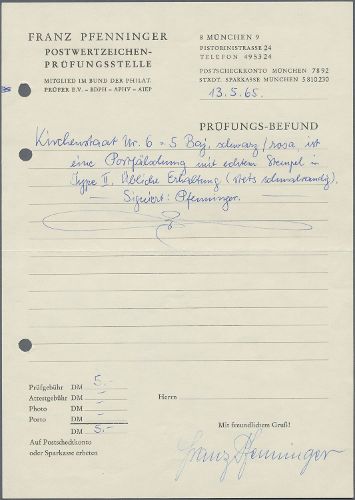 FRANZ PFENNINGER
POSTWERTZEICHEN-
PRÜFUNGSSTELLE
MITGLIED IM BUND DER PHILAT.
PRÜFER E.V. – BDPH – APHV – AIEP
8 MÜNCHEN 9
PISTORINISTRASSE 24
TELEFON 495324
POSTSCHECKKONTO MÜNCHEN 7892
STÄDT. SPARKASSE MÜNCHEN 5810230
13.5.65.
PRÜFUNGS-BEFUND
Kirchenstaat Nr. 6 = 5 Baj, schwarz/rosa, ist
eine Postfälschung mit echtem Stempel in
Type II, übliche Erhaltung (stets schmalrandig).
— Signiert: Pfenninger.
Prüfgebühr DM 5.-
Attestgebühr DM –
Photo DM –
Porto DM –
DM 5.-
Auf Postscheckkonto
oder Sparkasse erbeten
Herrn
Mit freundlichem Gruß!
Franz Pfenninger